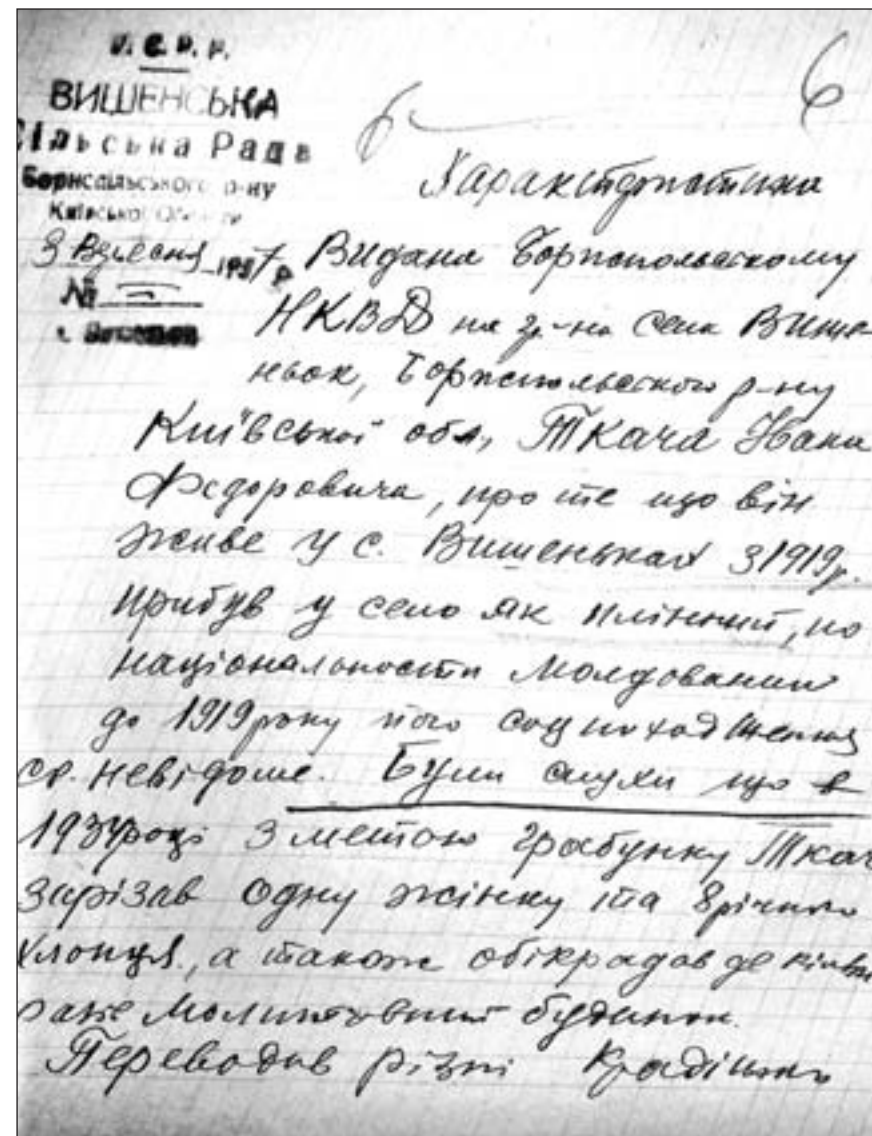 У. С. Р. Р.
ВИШЕНСЬКА
Сільська Рада
Бориспільського р-ну
Київської Області
3 Вересня 1937 р.
№
6
Характеристика
Видана Борисполь­скому
НКВД на гр-на села Више
ньок, Бориспольского р-ну
Київської обл, Ткача Івана
Федоровича, про те що він
живе у с. Вишеньках з 1919р.
прибув у село як плінний, по
національности молдованин
до 1919 року його соц походження
ср. невідоме. Були слухи що в
193 році з метою грабунку Ткач
зарізав одну жінку та 8 річного
хлопця, а також обікрадав де кілька
разів молитовний будинок.
Переводив різні крадіжки